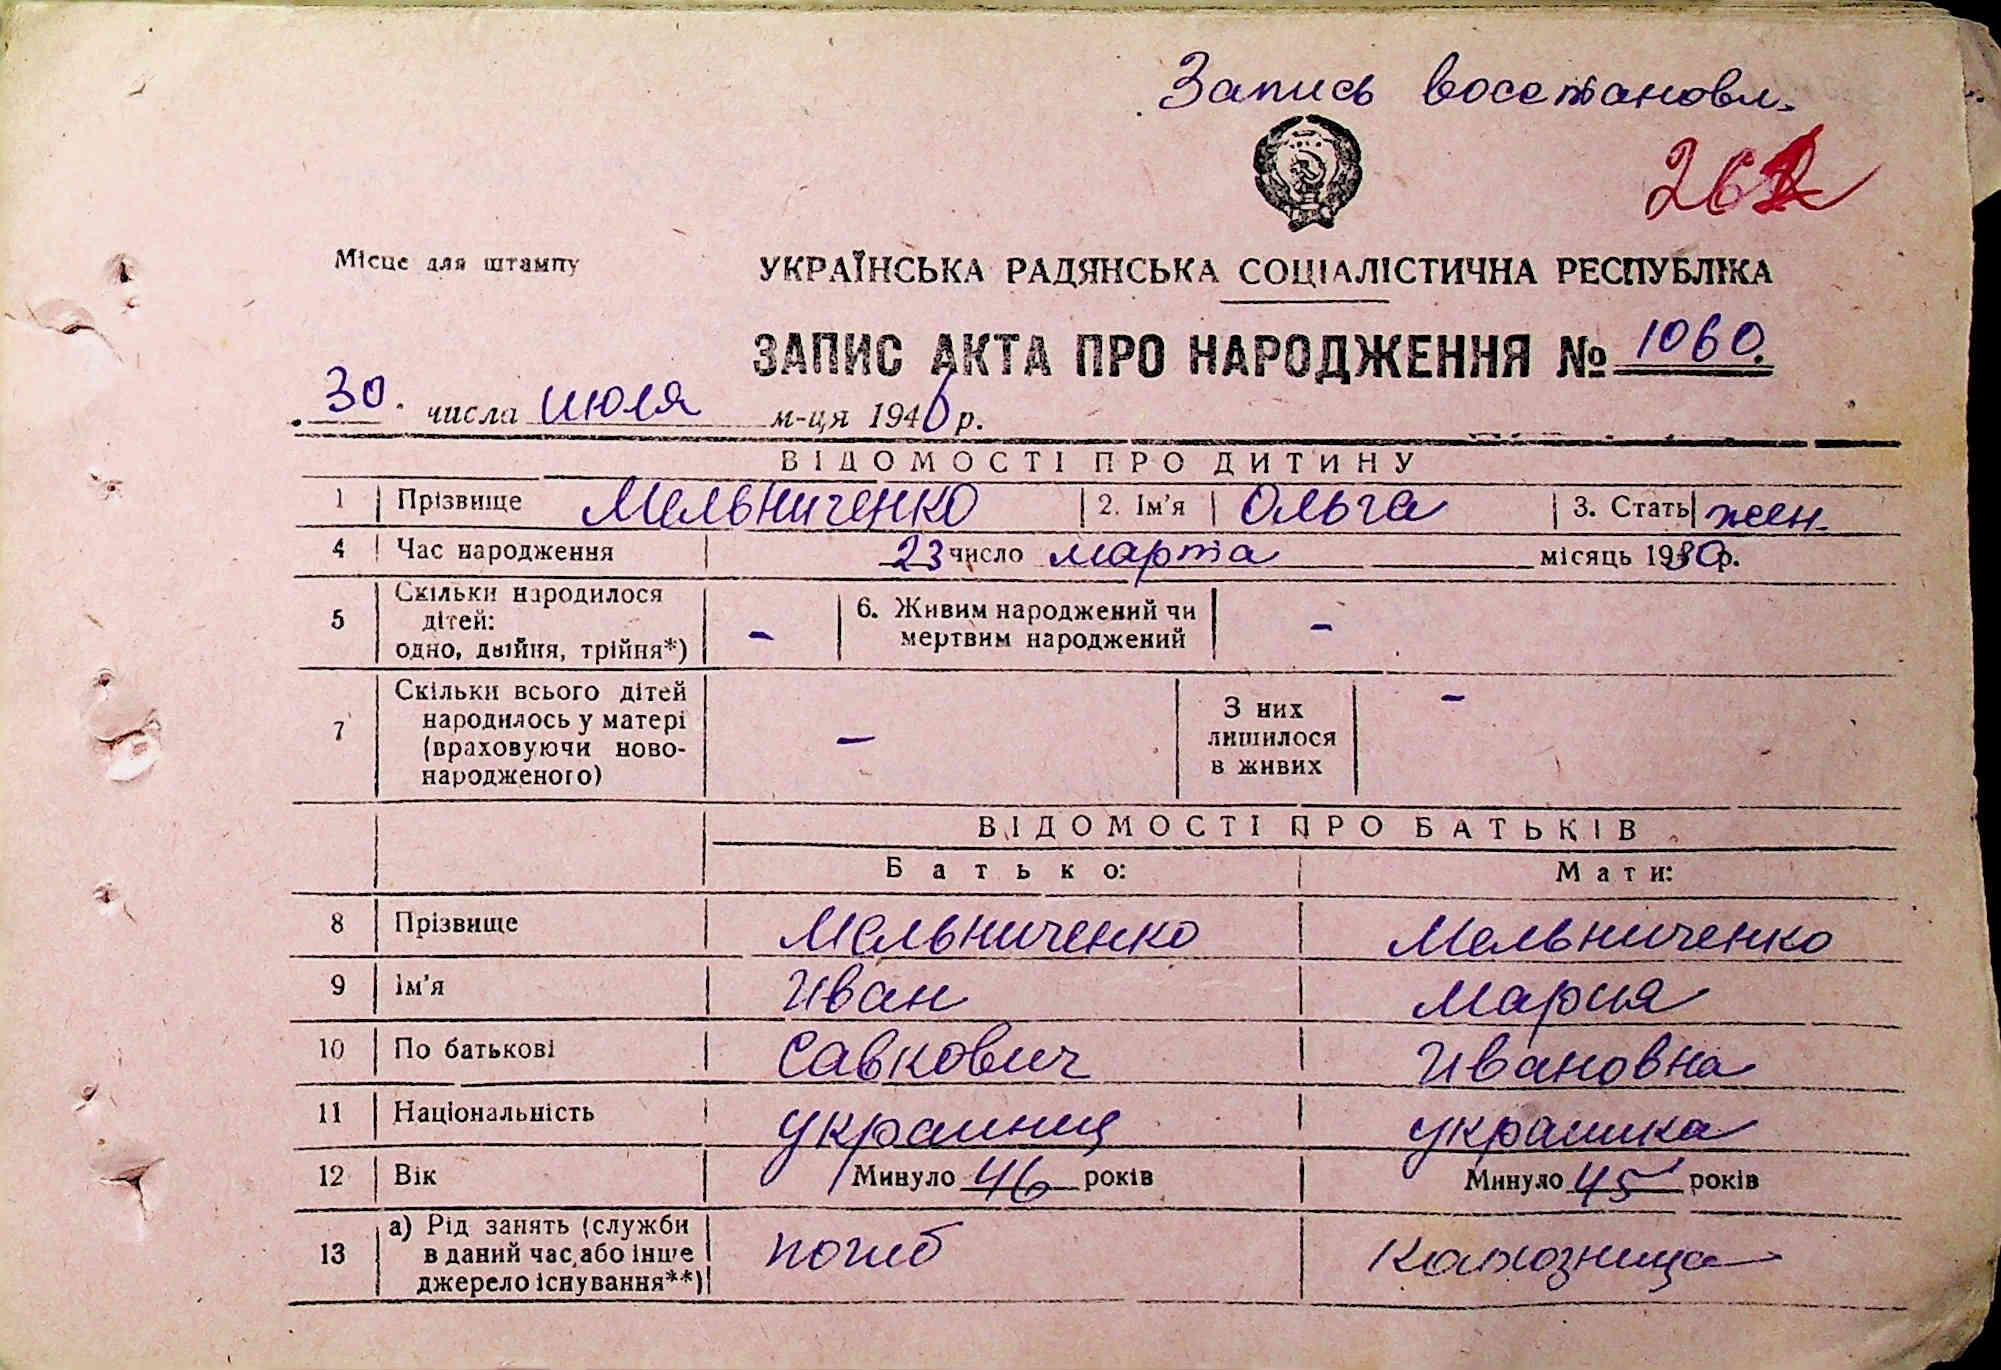 Запись восстановл.
262
Місце для штампу
УКРАЇНСЬКА РАДЯНСЬКА СОЦІАЛІСТИЧНА РЕСПУБЛІКА
ЗАПИС АКТА ПРО НАРОДЖЕННЯ № 1060.
30 числа июля м-ця 1946 р.
ВІДОМОСТІ ПРО ДИТИНУ
1 Прізвище Мельниченко 2. Ім'я Ольга 3. Стать жен.
4 Час народження 23 число марта місяць 1930 р.
5 Скільки народилося дітей: одно, двійня, трійня*) - 6. Живим народжений чи мертвим народжений -
7 Скільки всього дітей народилось у матері (враховуючи ново-народженого) - З них лишилося в живих -
ВІДОМОСТІ ПРО БАТЬКІВ
Батько: Мати:
8 Прізвище Мельниченко Мельниченко
9 Ім'я Иван Мария
10 По батькові Савкович Ивановна
11 Національність украинец украинка
12 Вік Минуло 46 років Минуло 45 років
13 а) Рід занять (служби в даний час або інше джерело існування**) погиб колхозница